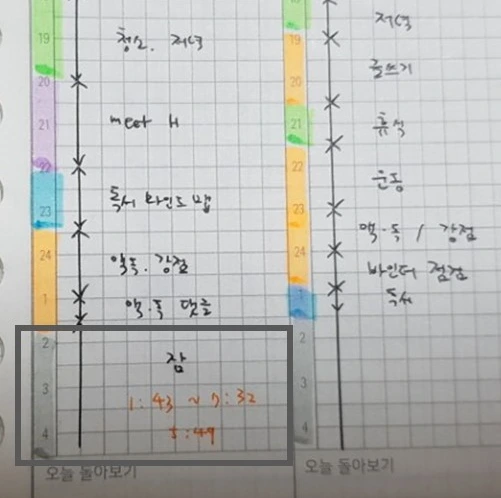 19
청소. 저녁
20
21
meet H
22
독서 마인드 맵
23
24
액독. 강점
1
액.독 댓글
2
잠
3
1:43 ~ 7:32
5:49
4
오늘 돌아보기
저녁
19
글쓰기
20
21
휴식
22
운동
23
액.독 / 강점
24
바인더 점검
1
독서
2
3
4
오늘 돌아보기